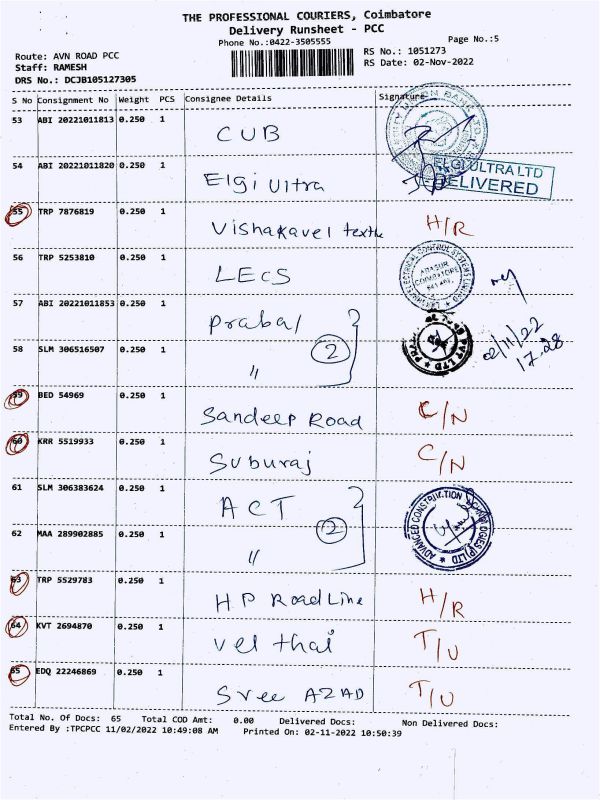 THE PROFESSIONAL COURIERS, Coimbatore
Delivery Runsheet - PCC
Phone No.:0422-3505555
Page No.:5
Route: AVN ROAD PCC
RS No.: 1051273
Staff: RAMESH
RS Date: 02-Nov-2022
DRS No.: DCJB105127305
S No Consignment No Weight PCS Consignee Details Signature
53 ABI 20221011813 0.250 1 CUB
54 ABI 20221011820 0.250 1 Elgi Ultra
ELGI ULTRA LTD
DELIVERED
55 TRP 7876819 0.250 1 Vishakavel textile H/R
56 TRP 5253810 0.250 1 LECS
57 ABI 20221011853 0.250 1 Prabal
58 SLM 306516507 0.250 1 〃 2
02/11/22
17.28
59 BED 54969 0.250 1 Sandeep Road C/N
60 KRR 5519933 0.250 1 Suburaj C/N
61 SLM 306383624 0.250 1 ACT
62 MAA 289902885 0.250 1 〃 2
ADVANCED CONSTRUCTION TECHNOLOGIES (P) LTD
63 TRP 5529783 0.250 1 HP Road Line H/R
64 KVT 2694870 0.250 1 Vel thai T/U
65 EDQ 22246869 0.250 1 Sree AZAD T/U
Total No. Of Docs: 65 Total COD Amt: 0.00 Delivered Docs: Non Delivered Docs:
Entered By :TPCPCC 11/02/2022 10:49:08 AM Printed On: 02-11-2022 10:50:39